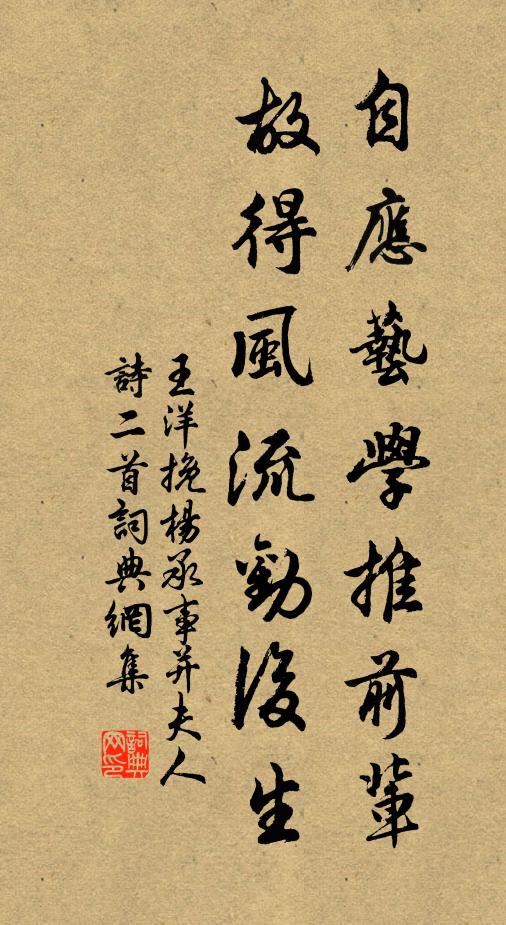 自應藝學推前輩
故得風流勸後生
王洋挽楊承事并夫人
詩二首詞典網集
詞典網印